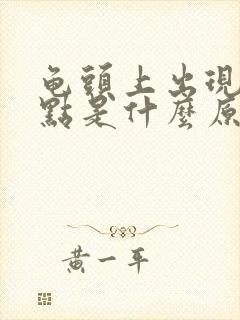 龟頭上出現
點是什麼原
黄一平